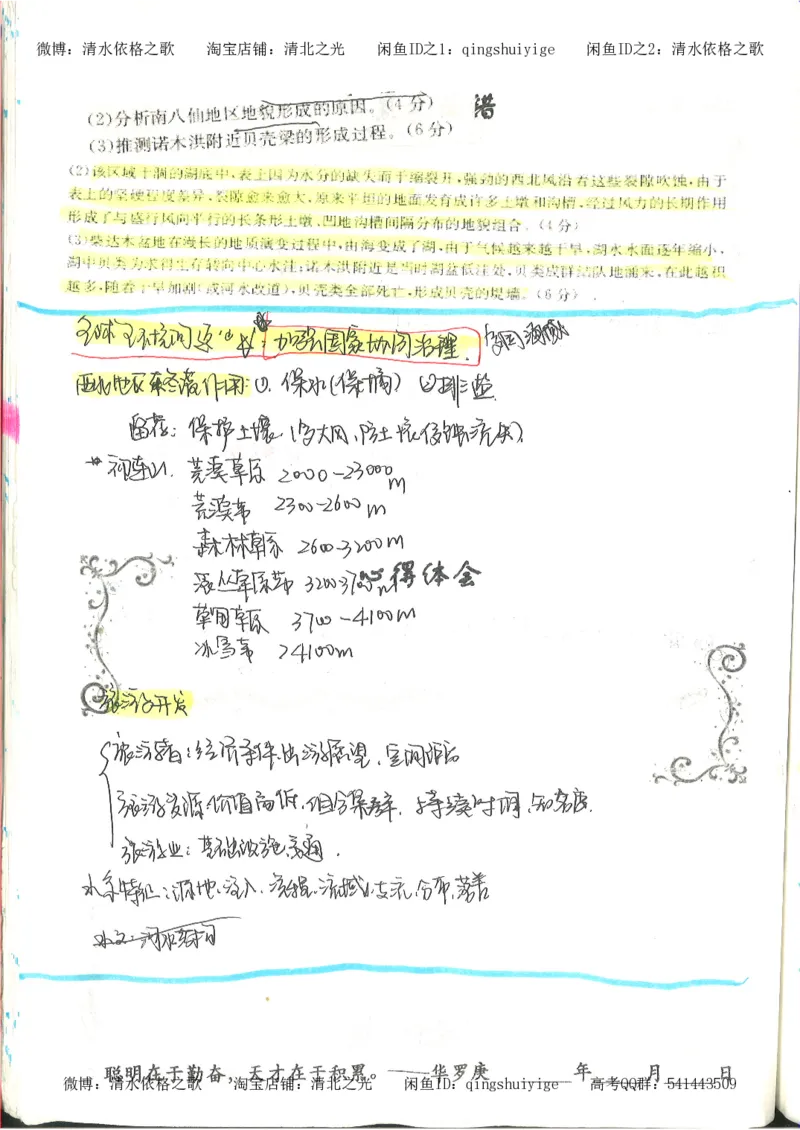 微博：清水依格之歌 淘宝店铺：清北之光 闲鱼ID之1：qingshuiyige 闲鱼ID之2：清水依格之歌
(2)分析南八仙地区地貌形成的原因。(4分)
(3)推测诺木洪附近贝壳梁的形成过程。(6分)
(2)该区域干涸的湖底中，表土因为水分的缺失而干缩裂开，强劲的西北风沿着这些裂隙吹蚀，由于
表土的坚硬程度差异，裂隙愈来愈大，原来平坦的地面发育成许多土墩和沟槽，经过风力的长期作用
形成了与盛行风向平行的长条形土墩、凹地沟槽间隔分布的地貌组合。(4分)
(3)柴达木盆地在漫长的地质演变过程中，由海变成了湖，由于气候越来越干旱，湖水水面逐年缩小，
湖中贝类为求得生存转向中心水洼；诺木洪附近是当时湖盆低洼处，贝类成群结队地涌来，在此越积
越多，随着干旱加剧(或河水改道)，贝壳类全部死亡，形成贝壳的堤墙。(6分)
全球环境问题 加强国家协同治理
西北地区 作用：①保水(保墒) ②排盐
留茬：保护土壤(防大风，防土壤侵蚀流失)
祁连山 荒漠草原 2000-23000m
荒漠带 2300-2600m
森林草原 2600-3200m
灌丛草原带 3200-3700m
心得体会
草甸草原 3700-4100m
冰雪带 >4100m
旅游开发
旅游者：经济条件，出游愿望，空闲
旅游资源价值高低，组合集群，持续时间，知名度
旅游业：基础设施，交通.
水系特征：源地，注入，流程，流域，支流，分布，落差
聪明在于勤奋，天才在于积累。——华罗庚 年 月 日
微博：清水依格之歌 淘宝店铺：清北之光 闲鱼ID：qingshuiyige 高考QQ群：541443509